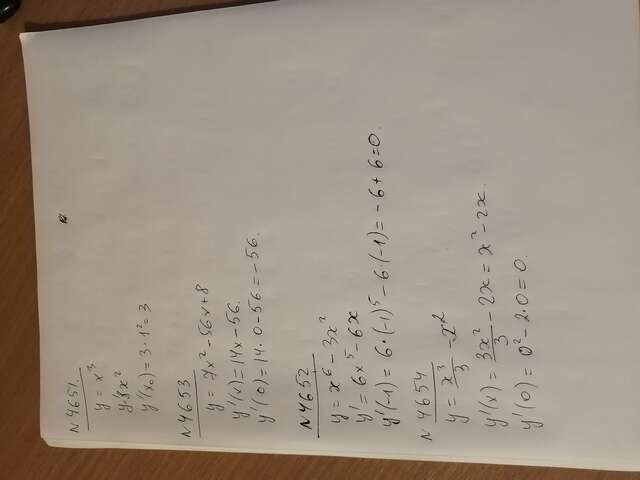 N 4651.
y = x³
y 3x²
y'(x₀) = 3·1² = 3
N 4653
y = 7x² - 56x + 8
y'(x) = 14x - 56.
y'(0) = 14·0 - 56 = -56.
N 4652
y = x⁶ - 3x²
y' = 6x⁵ - 6x
y'(-1) = 6·(-1)⁵ - 6·(-1) = -6 + 6 = 0.
N 4654
y = x³/3 - x²
y'(x) = 3x²/3 - 2x = x² - 2x.
y'(0) = 0² - 2·0 = 0.